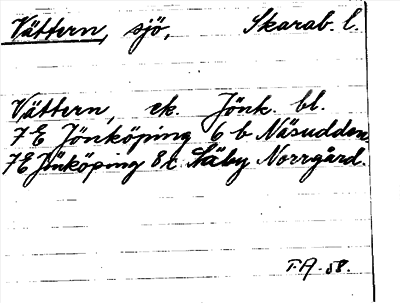 Vättern, sjö, Skarab. l.
Vättern, ek. Jönk. bl.
7 E Jönköping 6 b Näsudden.
7 E Jönköping 8 c Säby Norrgård.
T.A. 58.